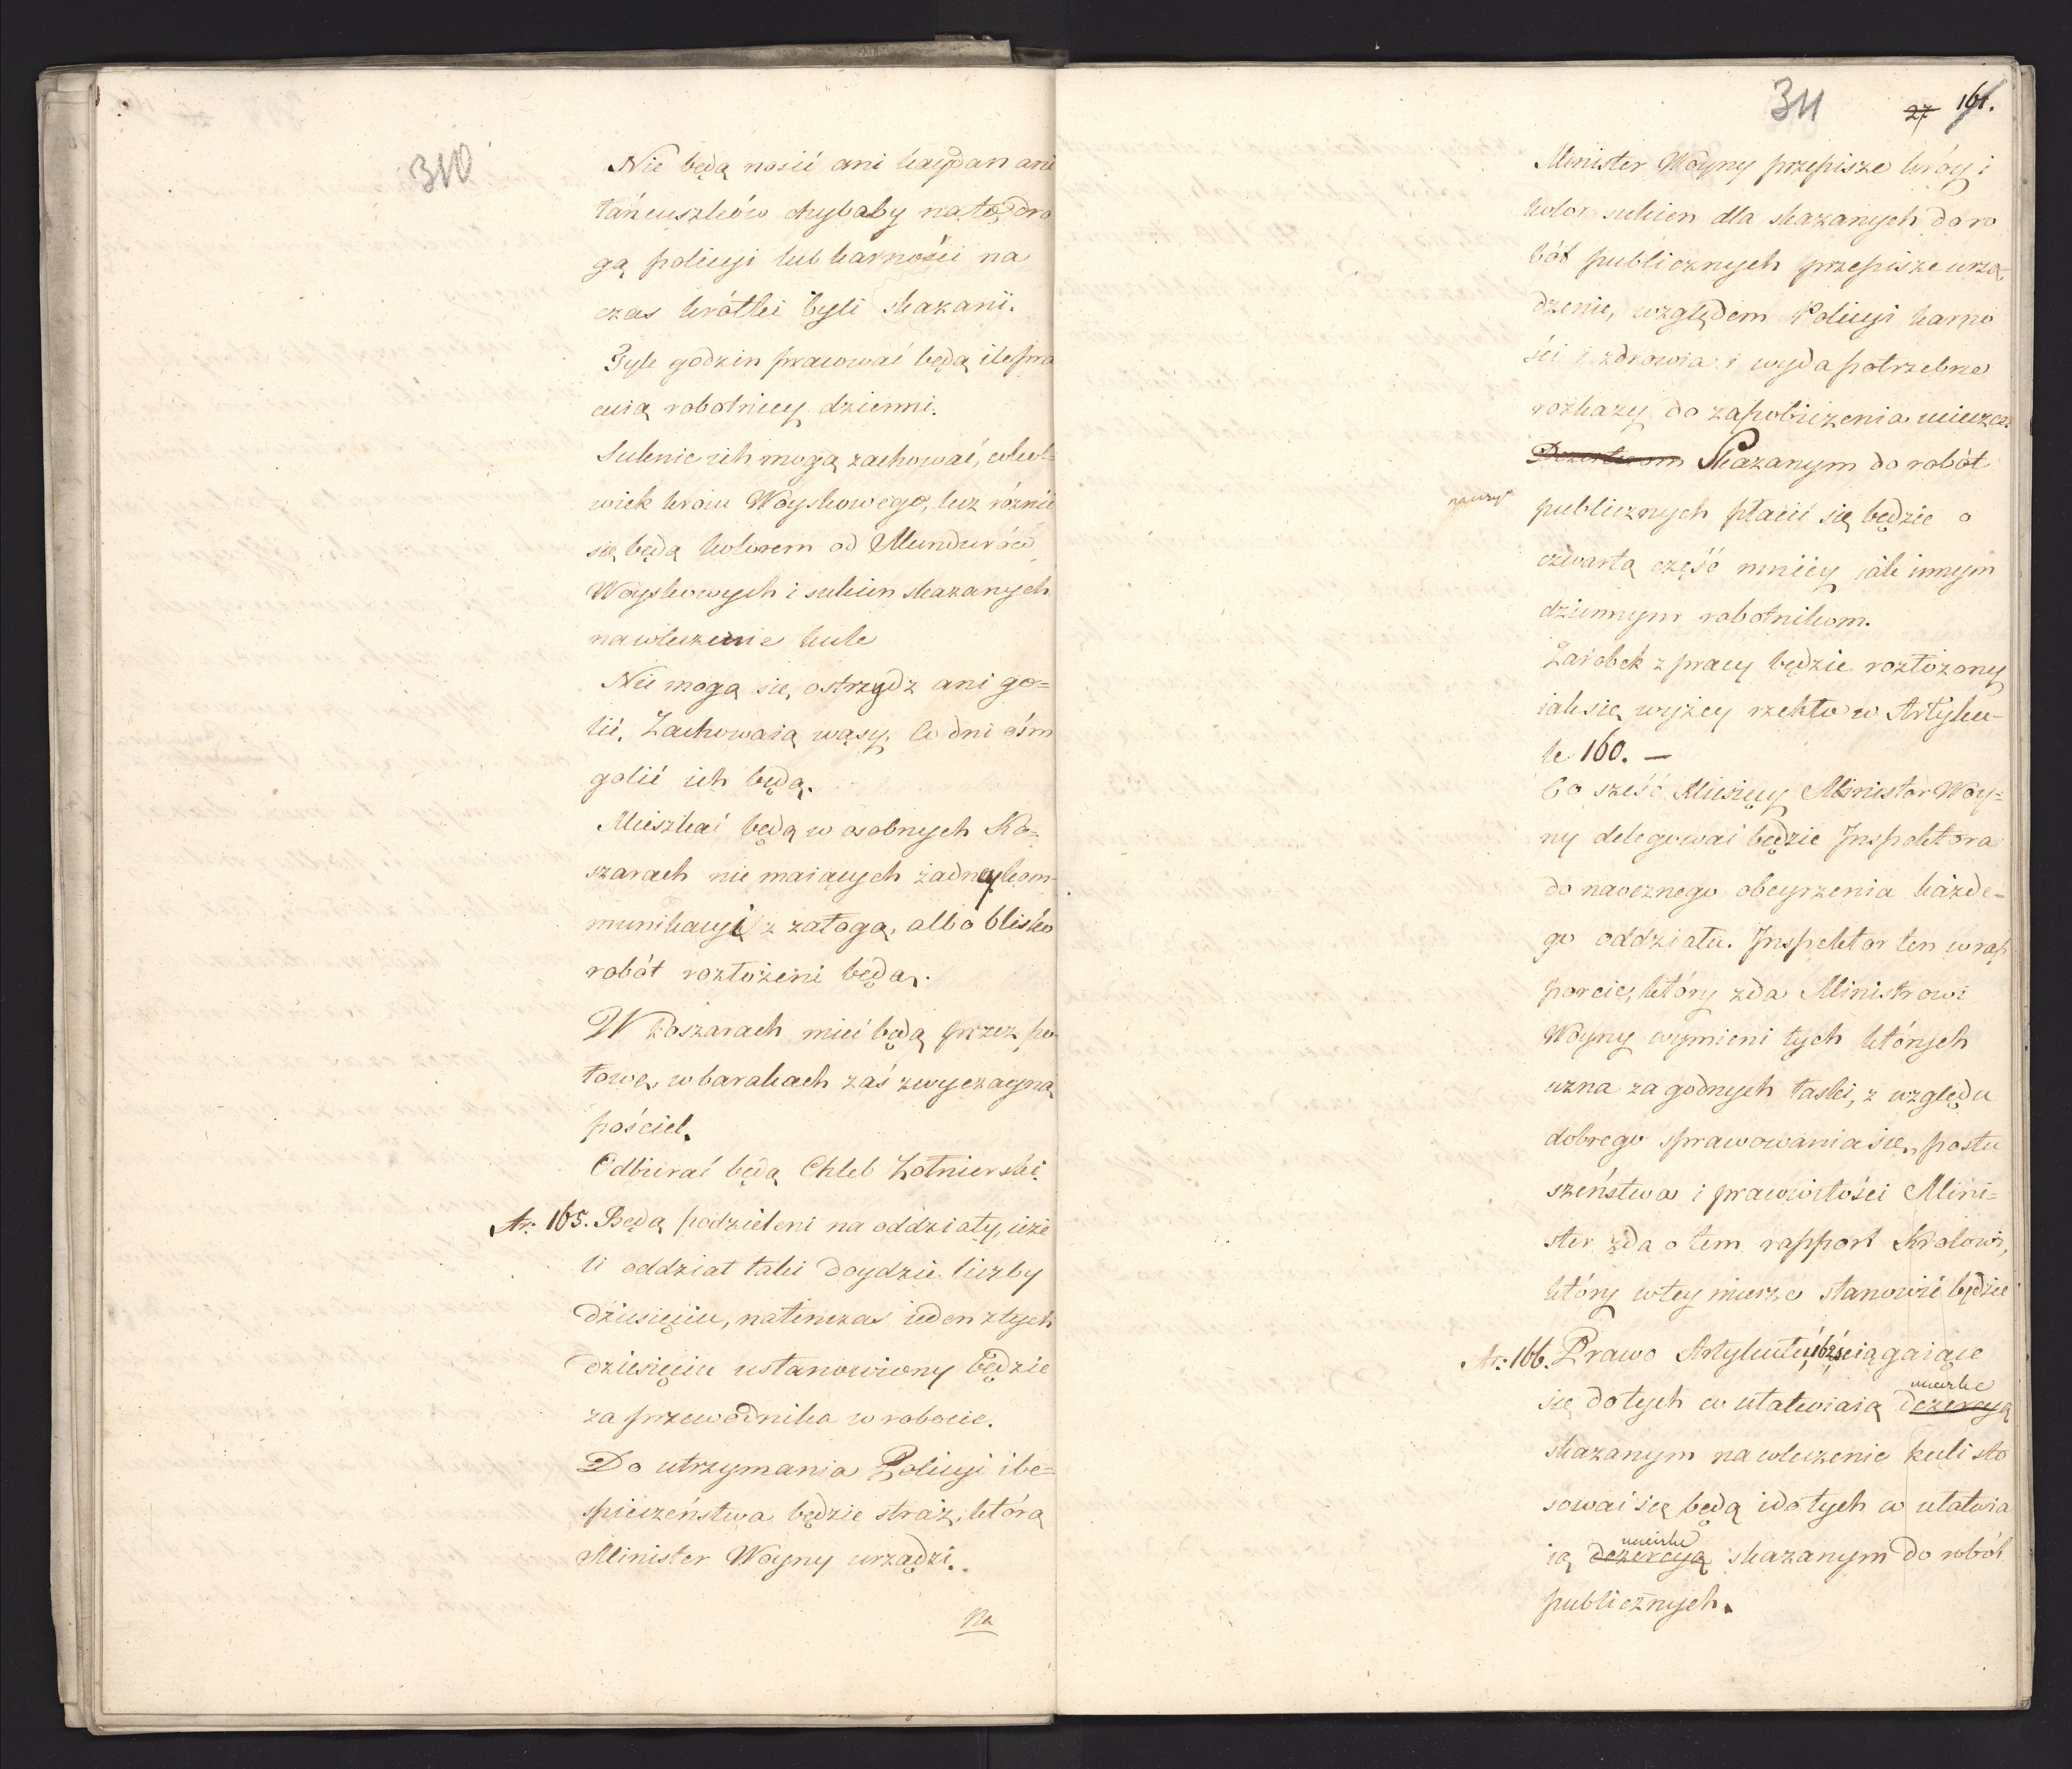 310
Nie będą nosić ani kaydan ani
łańcuszków chybaby na to dro
gą policyi lub karności na
czas krótki byli skazani.
Tyle godzin pracować będą ile pra
cuią robotnicy dzienni.
Suknie ich mogą zachować, choć-
wiek kroiu Woyskowego, lecz różnić
się będą kolorem od Mundurów
Woyskowych i sukien skazanych
na wleczenie kule
Nie mogą się ostrzydz ani go=
lić. Zachowaią wąsy. Co dni ośm
golić ich będą.
Mieszkać będą w osobnych Ko=
szarach nie maiących żadney kom-
munikacyi z załogą, albo blisko
robót rozłożeni będą.
W koszarach mieć będą przez po-
łowę, w barakach zaś zwyczayną
pościel.
Odbierać będą Chleb Żołnierski.
Ar: 165. Będą podzieleni na oddziały, ieże
li oddział taki doydzie liczby
dziesięciu, natenczas ieden z tych
dziesięciu ustanowiony będzie
za przewodnika w robocie.
Do utrzymania Policyi i be=
spieczeństwa będzie straż, którą
Minister Woyny urządzi.
Na
311
27 161.
Minister Woyny przepisze króy i
kolor sukien dla skazanych do ro
bót publicznych przepisze urzą-
dzenie, względem Policyi karno
ści i zdrowia i wyda potrzebne
rozkazy do zapobieżenia ucieczce.
Dezerterom Skazanym do robót
publicznych płacić się będzie o
czwartą część mniey iak innym
dziennym robotnikom.
Zarobek z pracy będzie rozłożony
iak się wyżey rzekło w Artyku-
le 160. —
Co sześć Miesięcy Minister Woy=
ny delegować będzie Inspektora
do naocznego obeyrzenia każde=
go oddziału. Inspektor ten w rap
porcie, który zda Ministrowi
Woyny wymieni tych których
uzna za godnych łaski, z względu
dobrego sprawowania się, posłu
szeństwa i prawowitości Mini=
ster zda o tem rapport Królowi,
który w tey mierze stanowić będzie
Ar: 166. Prawo Artykułu 163 ściągaiące
ucieczkę
się do tych co ułatwiaią dezercyą
skazanym na wleczenie kuli sto
sować się będą i do tych co ułatwia
ucieczkę
ią dezercyą skazanym do robót
publicznych.